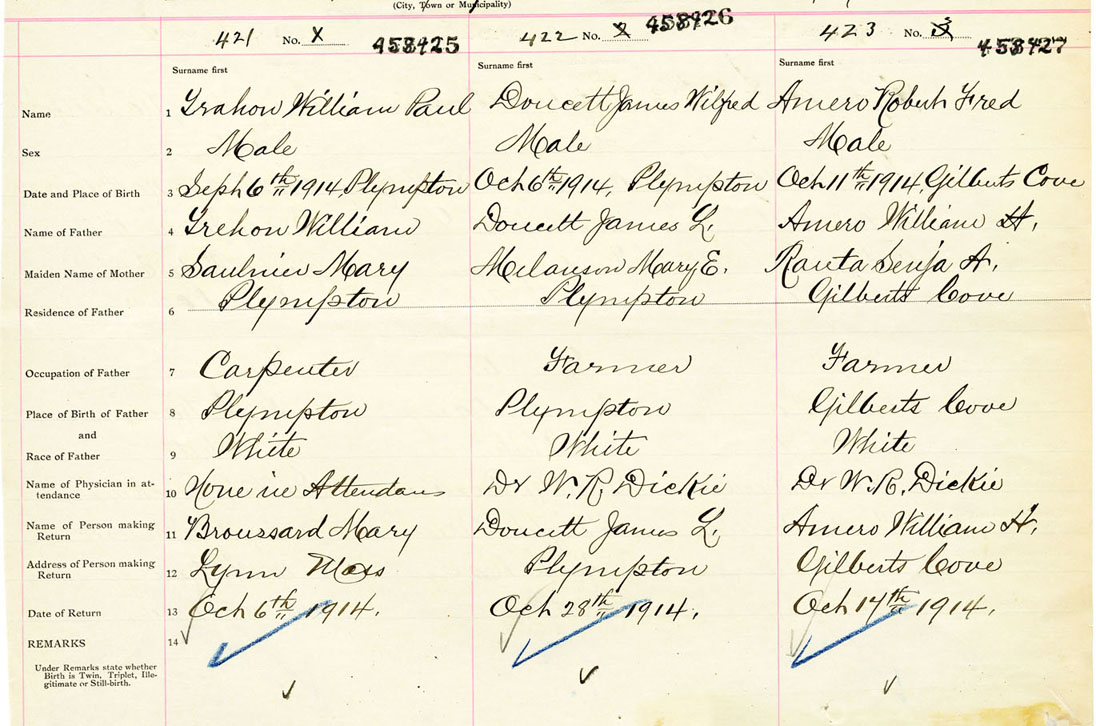 (City, Town or Municipality)
421 No. X 458925 422 No. X 458926 423 No. 458927
Surname first Surname first Surname first
Name 1 Trahon William Paul Doucett James Wilfred Amero Robert Fred
Sex 2 Male Male Male
Date and Place of Birth 3 Sept 6th 1914, Plympton Oct 6th 1914, Plympton Oct 11th 1914, Gilberts Cove
Name of Father 4 Trehon William Doucett James L. Amero William H.
Maiden Name of Mother 5 Saulnier Mary Melanson Mary E. Rauta Senja A.
Residence of Father 6 Plympton Plympton Gilberts Cove
Occupation of Father 7 Carpenter Farmer Farmer
Place of Birth of Father 8 Plympton Plympton Gilberts Cove
and
Race of Father 9 White White White
Name of Physician in at-
tendance 10 None in Attendans Dr W. R. Dickie Dr W. R. Dickie
Name of Person making
Return 11 Broussard Mary Doucett James L. Amero William H.
Address of Person making
Return 12 Lynn Mass Plympton Gilberts Cove
Date of Return 13 Oct 6th 1914. Oct 28th 1914. Oct 14th 1914.
REMARKS 14
Under Remarks state whether
Birth is Twin, Triplet, Ille-
gitimate or Still-birth.